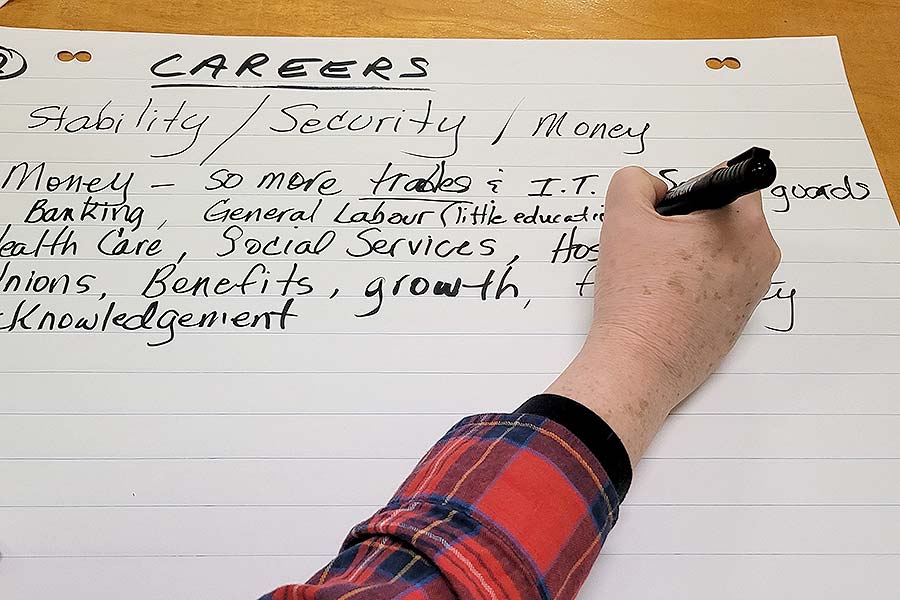 2 CAREERS
Stability / Security / Money
Money – so more trades & I.T. guards
Banking, General Labour (little educatio
ealth Care, Social Services, Hos
nions, Benefits, growth, f ty
cknowledgement